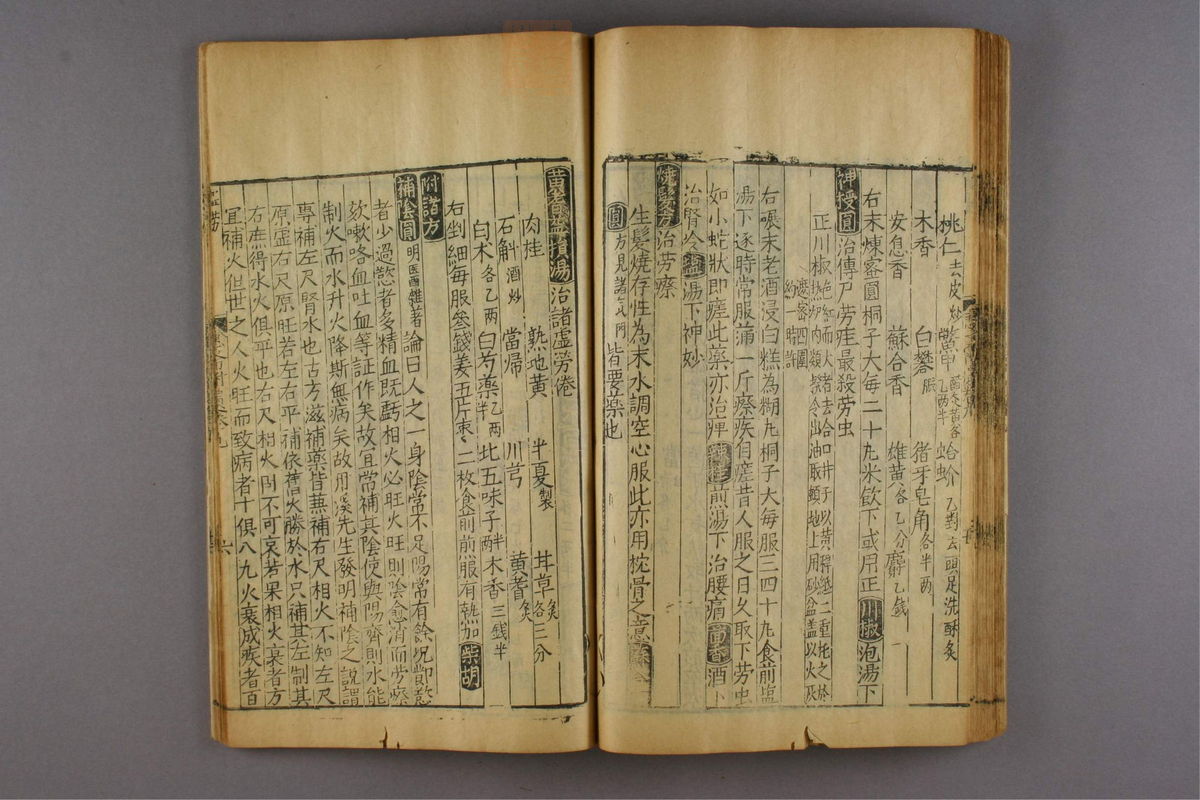 桃仁去皮炒 乙兩半 蛤蚧乙對去頭足洗酥炙
木香 白礬 猪牙皂角各半兩
安息香 蘇合香 雄黄各乙分 麝乙錢
右末煉蜜圓桐子大每二十丸米飲下或用正川椒泡湯下
神授圓治傳尸劳瘵最殺劳虫
正川椒色紅而大者去合口并子以黄紙二重托之於
炒内頻令出油取頓地上用砂盆盖以火灰
遮密四圍約一時許
右碾末老酒浸白糕為糊丸桐子大每服三四十丸食前塩
湯下逐時常服滿一斤瘵疾自瘥昔人服之日久取下劳虫
如小蛇狀即瘥此藥亦治痺煎湯下治腰痛茴香酒下
治腎冷塩湯下神妙
燒髮方治劳瘵
生髮燒存性為末水調空心服此亦用枕骨之意蘇合
圓方見諸氣門皆要藥也
黄耆益損湯治諸虚劳倦
肉桂 熟地黄 半夏製 甘草炙各二分
石斛酒炒 當帰 川芎 黄耆炙
白术各乙兩 白芍藥乙兩半 北五味子半兩 木香三錢半
右剉細每服叄錢姜五片枣二枚食前煎服有熱加柴胡
附諸方
補陰圓明医雜著論曰人之一身陰常不足陽常有餘况節慾
者少過慾者多精血既虧相火必旺火旺則陰愈消而劳瘵
欬嗽咯血吐血等証作矣故宜常補其陰使與陽齊則水能
制火而水升火降斯無病矣故丹溪先生發明補陰之說謂
專補左尺腎水也古方滋補藥皆兼補右尺相火不知左尺
原虚右尺原旺若左右平補依舊火勝於水只補其左制其
右庶得水火俱平也右尺相火固不可衰若果相火衰者方
宜補火但世之人火旺而致病者十俱八九火衰成疾者百